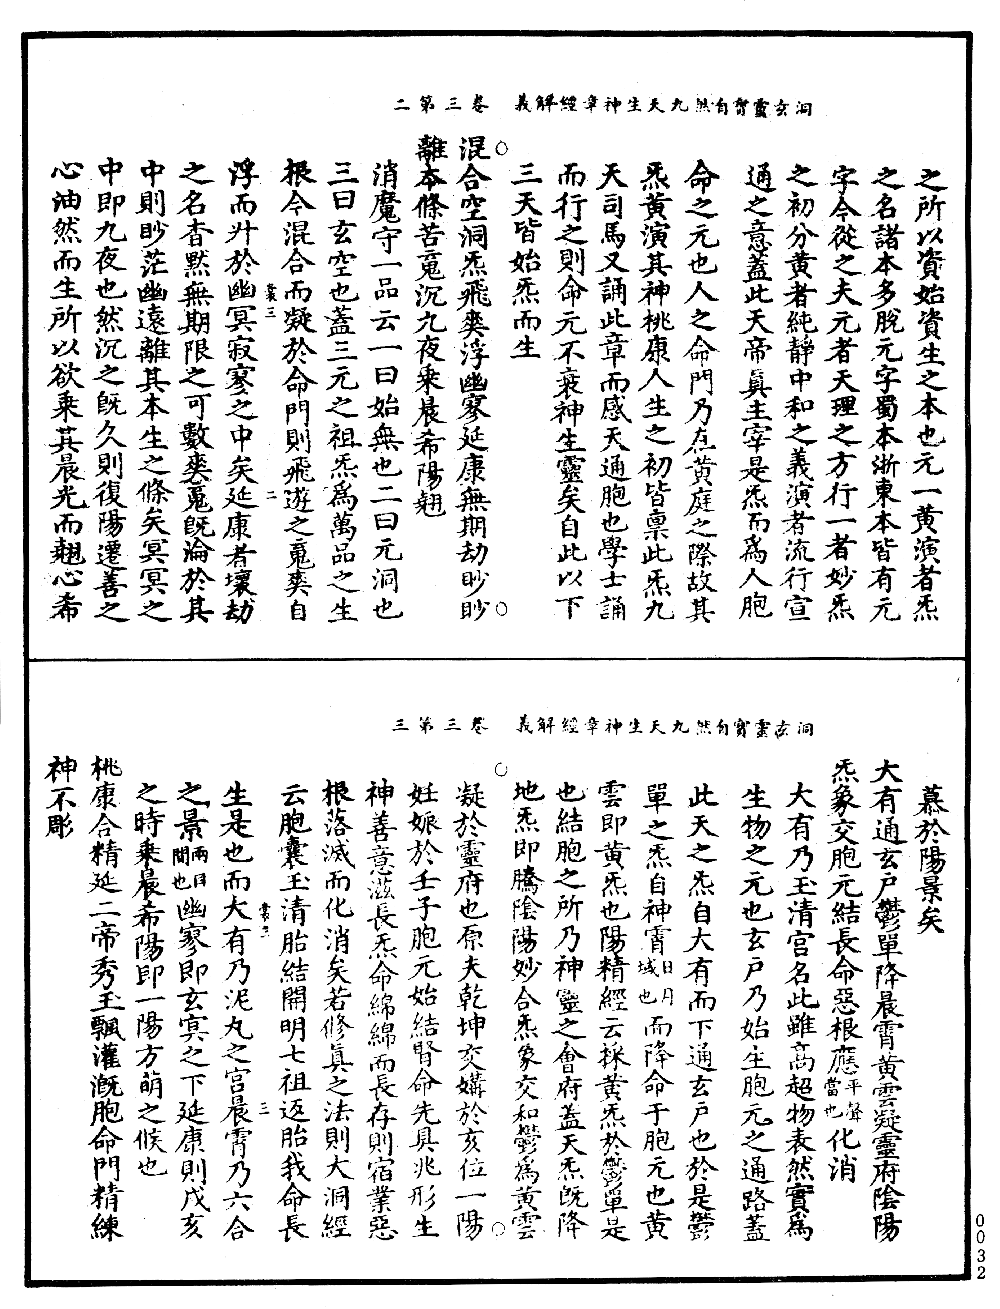 洞玄靈寳自然九天生神章經解義　卷三第二
之所以資始資生之本也元一黃演者炁
之名諸本多脫元字蜀本浙東本皆有元
字今從之夫元者天理之方行一者妙炁
之初分黃者純靜中和之義演者流行宣
通之意蓋此天帝眞主宰是炁而爲人胞
命之元也人之命門乃在黃庭之際故其
炁黃演其神桃康人生之初皆禀此炁九
天司馬又誦此章而感天通胞也學士誦
而行之則命元不衰神生靈矣自此以下
三天皆始炁而生
混合空洞炁飛爽浮幽寥延康無期劫眇眇
離本條苦䰟沉九夜乗晨希陽翹
消魔守一品云一曰始無也二曰元洞也
三曰玄空也蓋三元之祖炁爲萬品之生
根今混合而凝於命門則飛遊之䰟爽自
裳三　二
浮而升於幽冥寂寥之中矣延康者壞劫
之名杳默無期限之可數爽䰟旣淪於其
中則眇茫幽遠離其本生之條矣冥冥之
中即九夜也然沉之旣久則復陽遷善之
心油然而生所以欲乗其晨光而翹心希
洞玄靈寳自然九天生神章經解義　卷三第三
慕於陽景矣
大有通玄戸鬱單降晨霄黃雲凝靈府陰陽
炁象交胞元結長命惡根應平聲當也化消
大有乃玉清宮名此雖高超物表然實爲
生物之元也玄戸乃始生胞元之通路蓋
此天之炁自大有而下通玄戸也於是鬱
單之炁自神霄日月域也而降命于胞元也黃
雲即黃炁也陽精經云採黃炁於鬱單是
也結胞之所乃神靈之會府蓋天炁旣降
地炁即騰陰陽妙合炁象交和鬱爲黃雲
凝於靈府也原夫乾坤交媾於亥位一陽
妊娠於壬子胞元始結腎命先具兆形生
神善意滋長炁命綿綿而長存則宿業惡
根落滅而化消矣若修眞之法則大洞經
云胞囊玉清胎結開明七祖返胎我命長
裳三　三
生是也而大有乃泥丸之宮晨霄乃六合
之景兩目間也幽寥即玄冥之下延康則戌亥
之時乗晨希陽即一陽方萌之候也
桃康合精延二帝秀玉飄灌漑胞命門精練
神不彫
0032